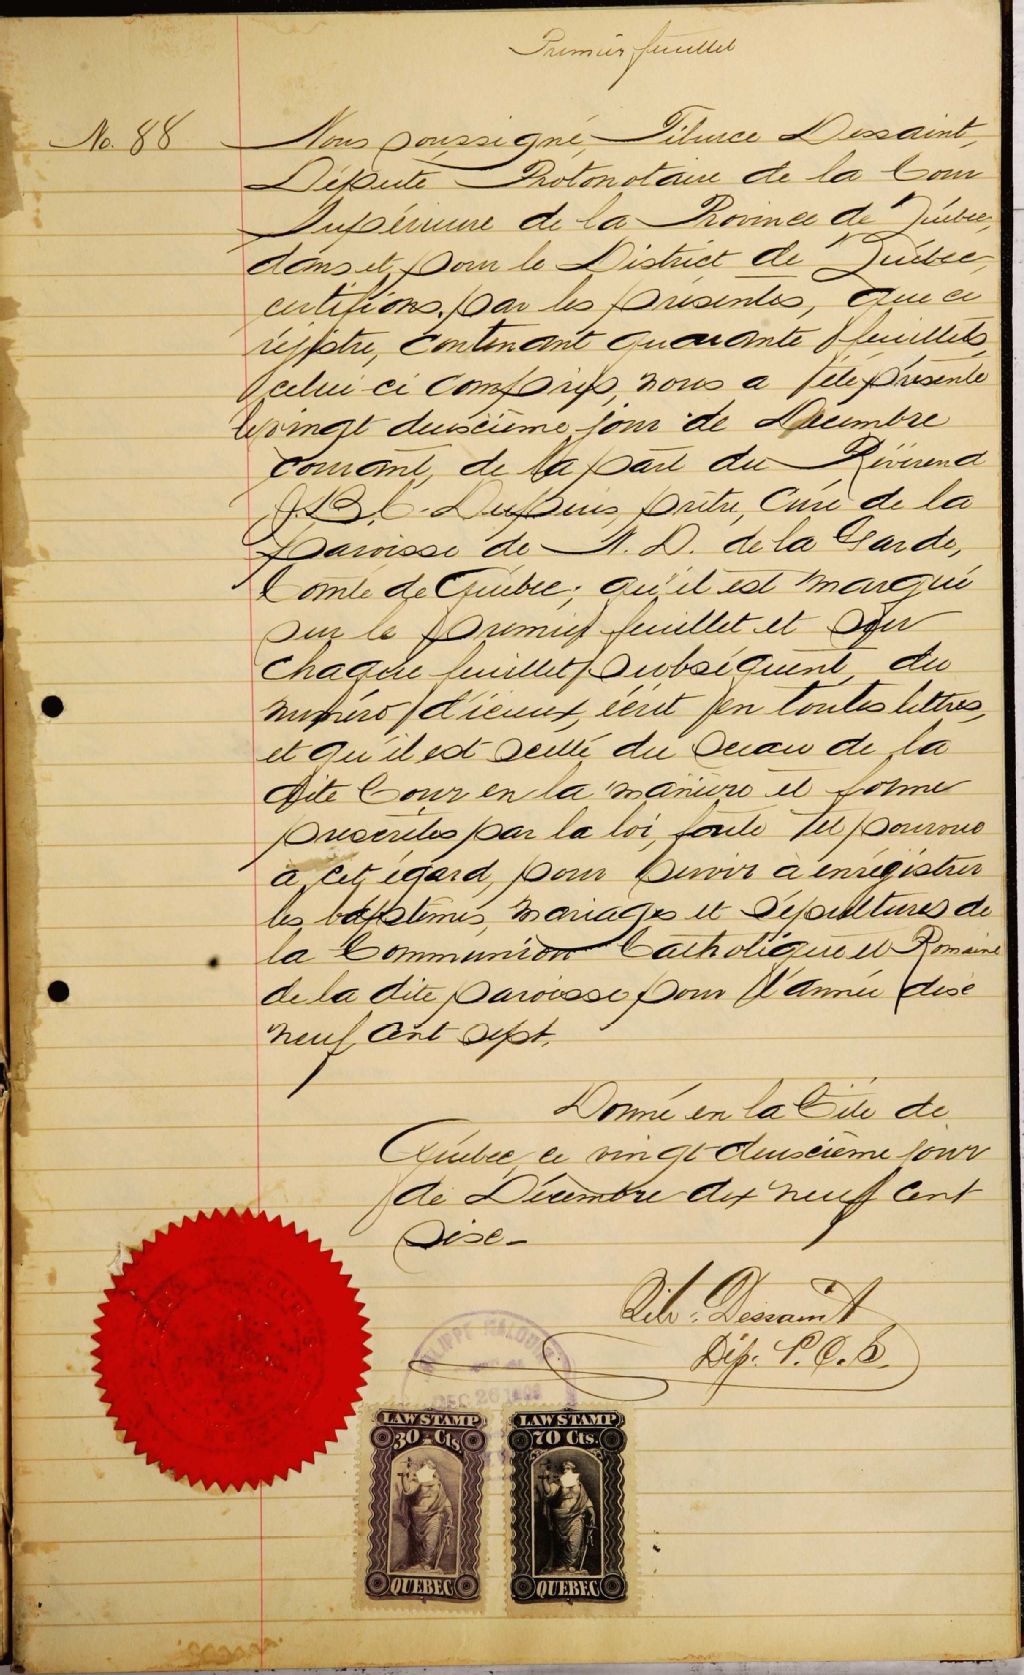 Premier feuillet
No. 88
Nous soussigné, Tiburce Dessaint,
Député Protonotaire de la Cour
Supérieure de la Province de Québec,
dans et pour le District de Québec,
certifions par les présentes, que ce
régistre, contenant quarante feuillets,
celui ci compris, nous a été présenté
le vingt deuxième jour de Decembre
courant, de la part du Révérend
J. B. C. Dupuis, prêtre, Curé de la
paroisse de N. D. de la Garde,
Comté de Québec; qu'il est marqué
sur le premier feuillet et sur
chaque feuillet subséquent, du
numéro d'iceux, écrit en toutes lettres,
et qu'il est scellé du sceau de la
dite Cour en la manière et forme
prescrites par la loi, faite et pourvue
à cet égard, pour servir à enrégistrer
les baptêmes, mariages et sépultures de
la Communion Catholique et Romaine
de la dite paroisse pour l'année dix
neuf cent sept.
Donné en la Cité de
Québec, ce vingt deuxième jour
de Décembre dix neuf cent
six.
Tib. Dessaint
Dép. P. C. S.
MALOUIN
DEC 26
LAW STAMP
30 Cts.
QUEBEC
LAW STAMP
70 Cts.
QUEBEC